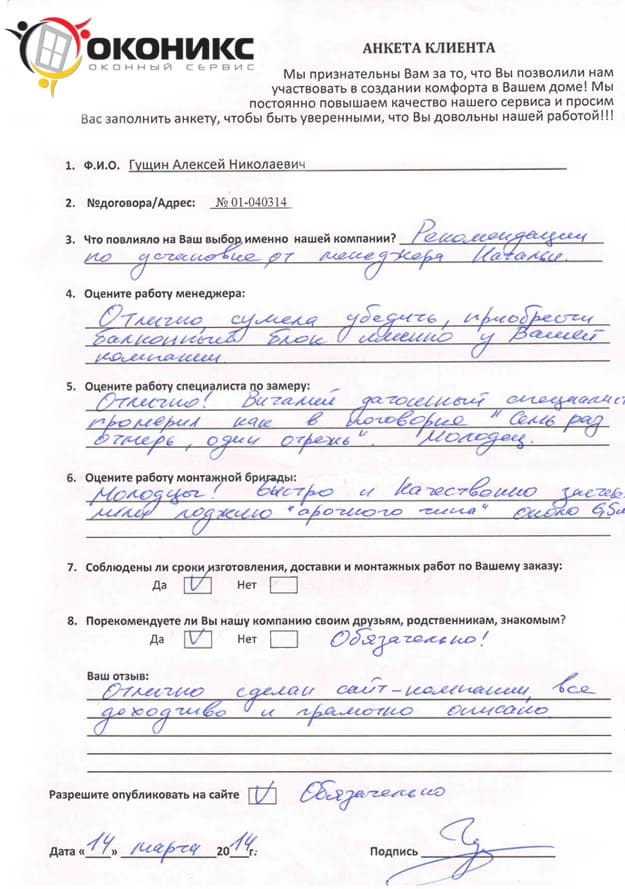 ОКОНИКС
ОКОННЫЙ СЕРВИС
АНКЕТА КЛИЕНТА
Мы признательны Вам за то, что Вы позволили нам
участвовать в создании комфорта в Вашем доме! Мы
постоянно повышаем качество нашего сервиса и просим
Вас заполнить анкету, чтобы быть уверенными, что Вы довольны нашей работой!!!
1. Ф.И.О. Гущин Алексей Николаевич
2. №договора/Адрес: № 01-040314
3. Что повлияло на Ваш выбор именно нашей компании? Рекомендации
по установке от менеджера Натальи.
4. Оцените работу менеджера:
Отлично, сумела убедить, приобрести
балконный блок именно у Вашей
компании
5. Оцените работу специалиста по замеру:
Отлично! Виталий дотошный специалист
промерил как в поговорке "Семь раз
отмерь, один отрежь". Молодец.
6. Оцените работу монтажной бригады:
Молодцы! Быстро и Качественно
лоджию "арочного типа" около 6,5м
7. Соблюдены ли сроки изготовления, доставки и монтажных работ по Вашему заказу:
Да V Нет
8. Порекомендуете ли Вы нашу компанию своим друзьям, родственникам, знакомым?
Да V Нет Обязательно!
Ваш отзыв:
Отлично сделан сайт-компании, все
доходчиво и грамотно описано
Разрешите опубликовать на сайте V Обязательно
Дата «14» марта 2014г. Подпись